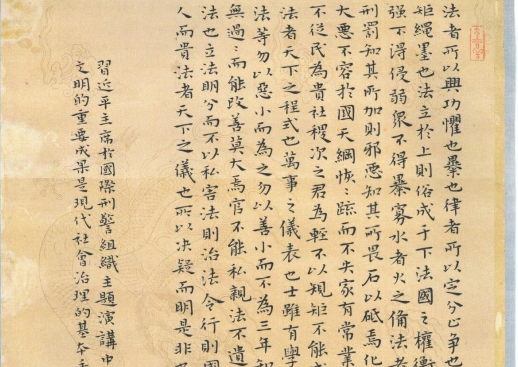 法者所以興功懼也暴也律者所以定分止爭也
矩繩墨也法立於上則俗成于下法國之權衡
强不得侵弱眾不得暴寡水者火之備法者
刑罰知其所加則邪惡知其所畏石以砥焉化
大惡不容於國天網恢:疏而不失家有常業
不從民為貴社稷次之君為輕不以規矩不能
法者天下之程式也萬事之儀表也士雖有學
法等勿以惡小而為之勿以善小而不為三年
無過:而能改善莫大焉官不能私親法不遺
法也立法明分而不以私害法則治法令行則國
人而貴法者天下之儀也所以决疑而明是非
習近平主席於國際刑警組織主題演講中
文明的重要成果是現代社會治理的基本